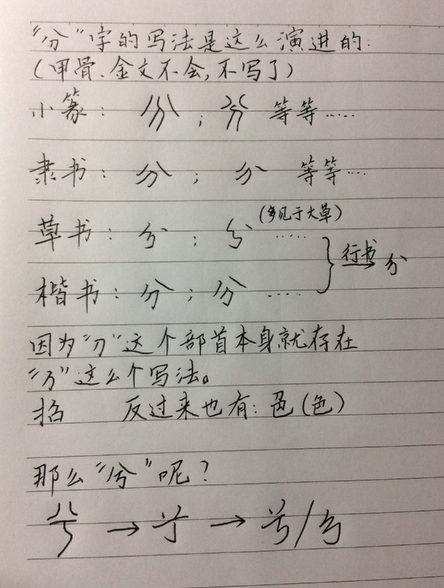 “分”字的写法是这么演进的:
(甲骨、金文不会,不写了)
小篆: 分 ; 分 等等……
隶书: 分 ; 分 等等…
草书: 分 ; 分 (多见于大草) ……
楷书: 分 ; 分 …… } 行书 分
因为“刀”这个部首本身就存在
“刀”这么个写法。
反过来也有: 色(色)
那么“兮”呢?
兮 → 兮 → 兮/兮